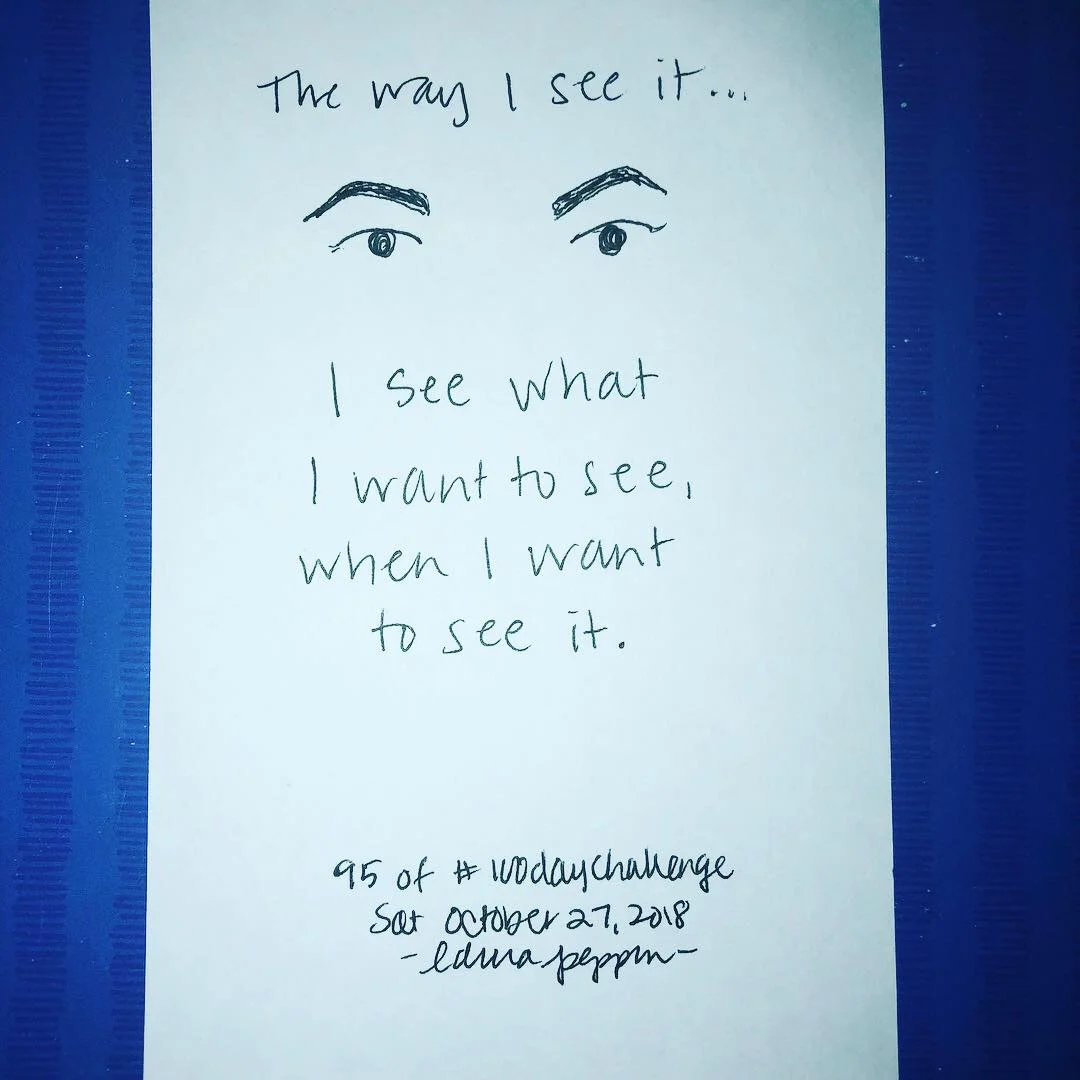 The way I see it...
I see what
I want to see,
when I want
to see it.
95 of #100daychallenge
Sat October 27, 2018